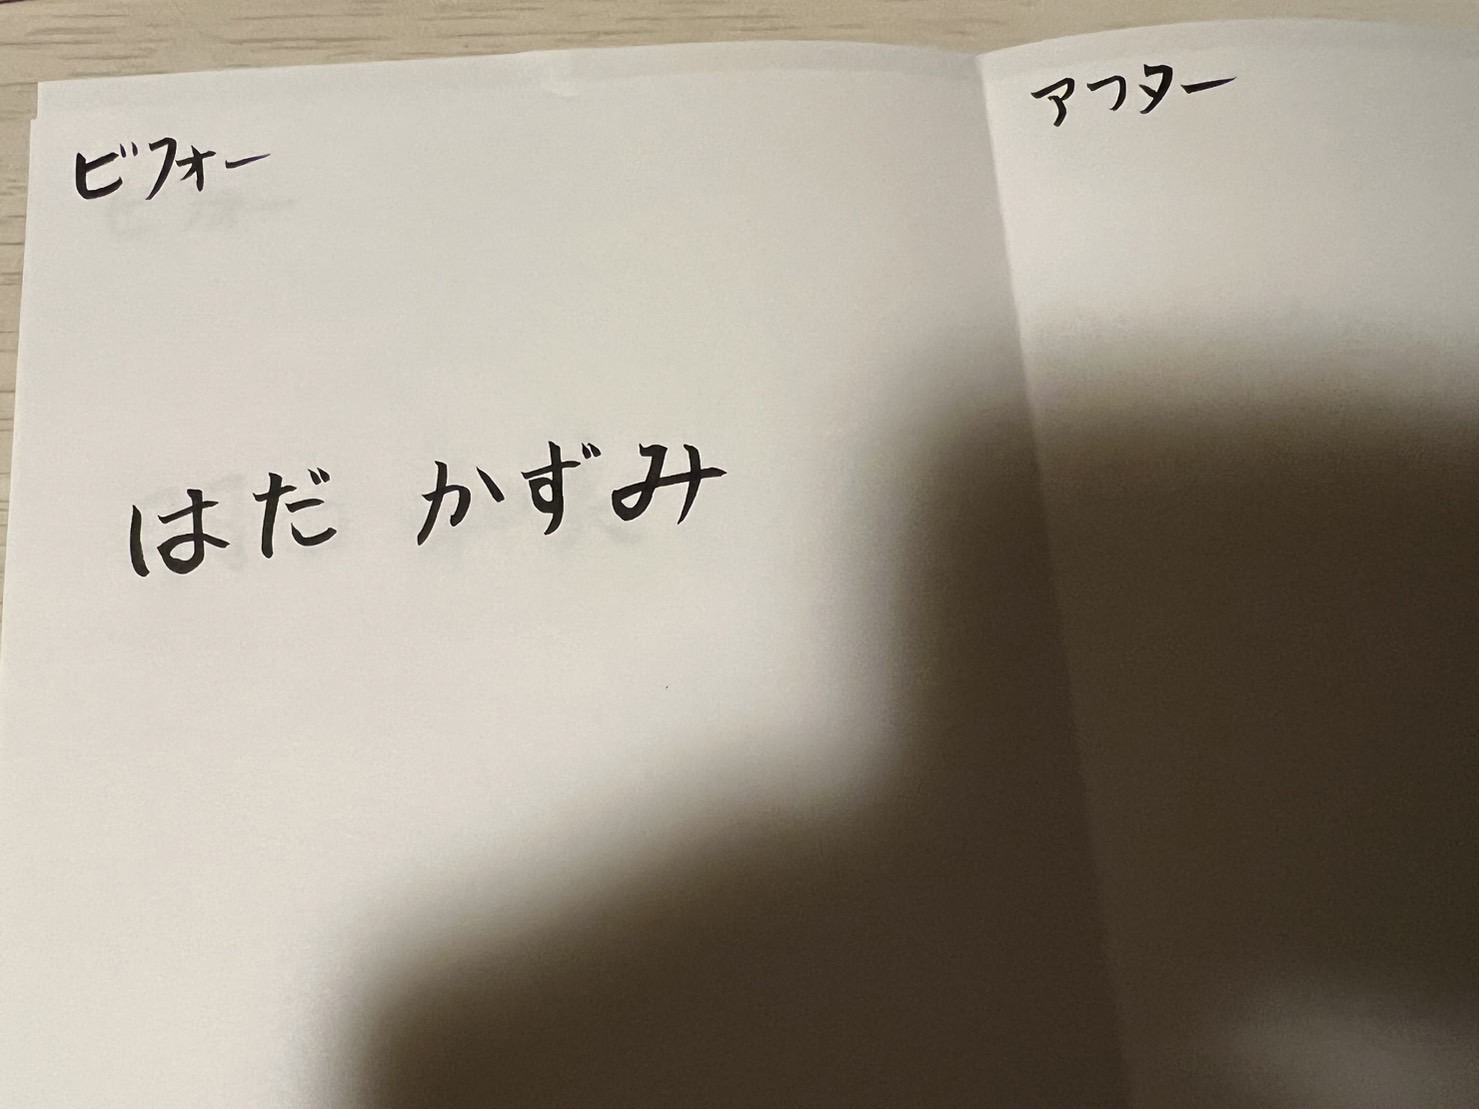 ビフォー
アフター
はだ かずみ